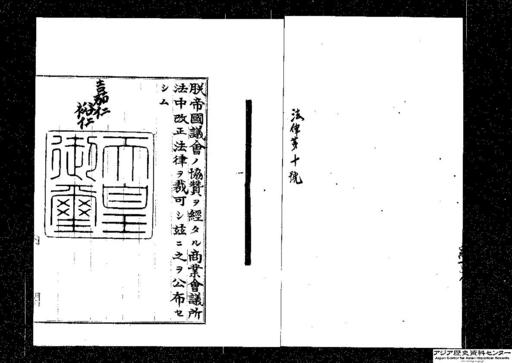 法律第十號
朕帝國議會ノ協贊ヲ經タル商業會議所
法中改正法律ヲ裁可シ茲ニ之ヲ公布セ
シム
嘉仁
裕仁
天皇
御璽
アジア歴史資料センター
Japan Center for Asian Historical Records